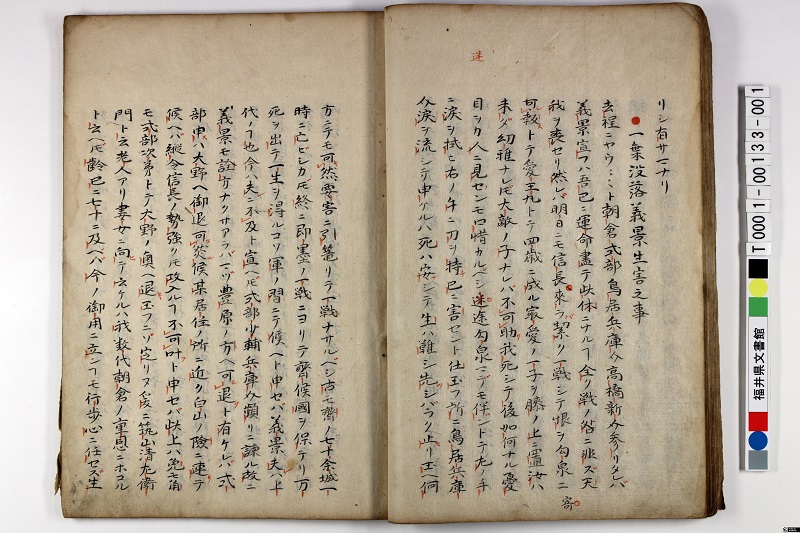 迷
リシ有サマナリ
一乗没落義景生害之事
去程ニヤウ〳〵ト朝倉式部鳥居兵庫介高橋新介参リタレバ
義景宣フハ吾已ニ運命盡テ此体ニナル了全ク戦ノ咎ニ非ズ天
我ヲ喪セリ然レバ明日ニモ信長来ラバ潔ク一戦シテ恨ヲ勾泉ニ
可報トテ愛王丸トテ四歳ニ成ル寂愛ノ一子ヲ膝ノ上ニ置汝ハ
未ダ幼稚ナレ𪜈大敵ノ子ナレバ不可助我死シテ後如何ナル憂
目ヲカ人ニ見センモ口惜カルベシ迷途勾泉ニテモ伴ントテ左ノ手
ニ涙ヲ拭ヒ右ノ手ニ刀ヲ持已ニ害セント仕玉フ所ニ鳥居兵庫
介涙ヲ流シテ申ケルハ死ハ安シテ生ハ難シ先シバラク止リ玉ヘ何
寄
方ニテモ可然要害ニ引篭リテ一戦ナサルベシ古モ齊ノ七十余城一
時ニ亡ビシカ𪜈終ニ即墨ノ一戦ニヨリテ齊候國ヲ保テリ万
死ヲ出テ一生ヲ得ルコソ軍ノ習ニテ候ヘト申セバ義景夫ハ上
代ノ了也今ハ夫ニ不及ト宣ヘ𪜈式部少輔兵庫介頻リニ諫ル故ニ
義景モ詮方ナクサアラバ一マヅ豊原ノ方ヘ可退ト有ケレバ式
部申ハ大野ヘ御退可然候其居住ノ所ニ近ク白山ノ険ニ連テ
候ヘバ縦令信長ノ勢強ク𪜈攻入ル了不可叶ト申セバ此上ハ兎モ角
モ式部次第トテ大野ノ奥ヘ退玉フニゾ定リヌ爰ニ筑山清左衛
門ト云老人アリ妻女ニ向テ云ケルハ我数代朝倉ノ重恩ニホコル
ト云ヘ𪜈齢已ニ七十ニ及ベハ今ノ御用ニ立ン了モ行歩心ニ任セズ生
T0001-00133-001
福井県文書館